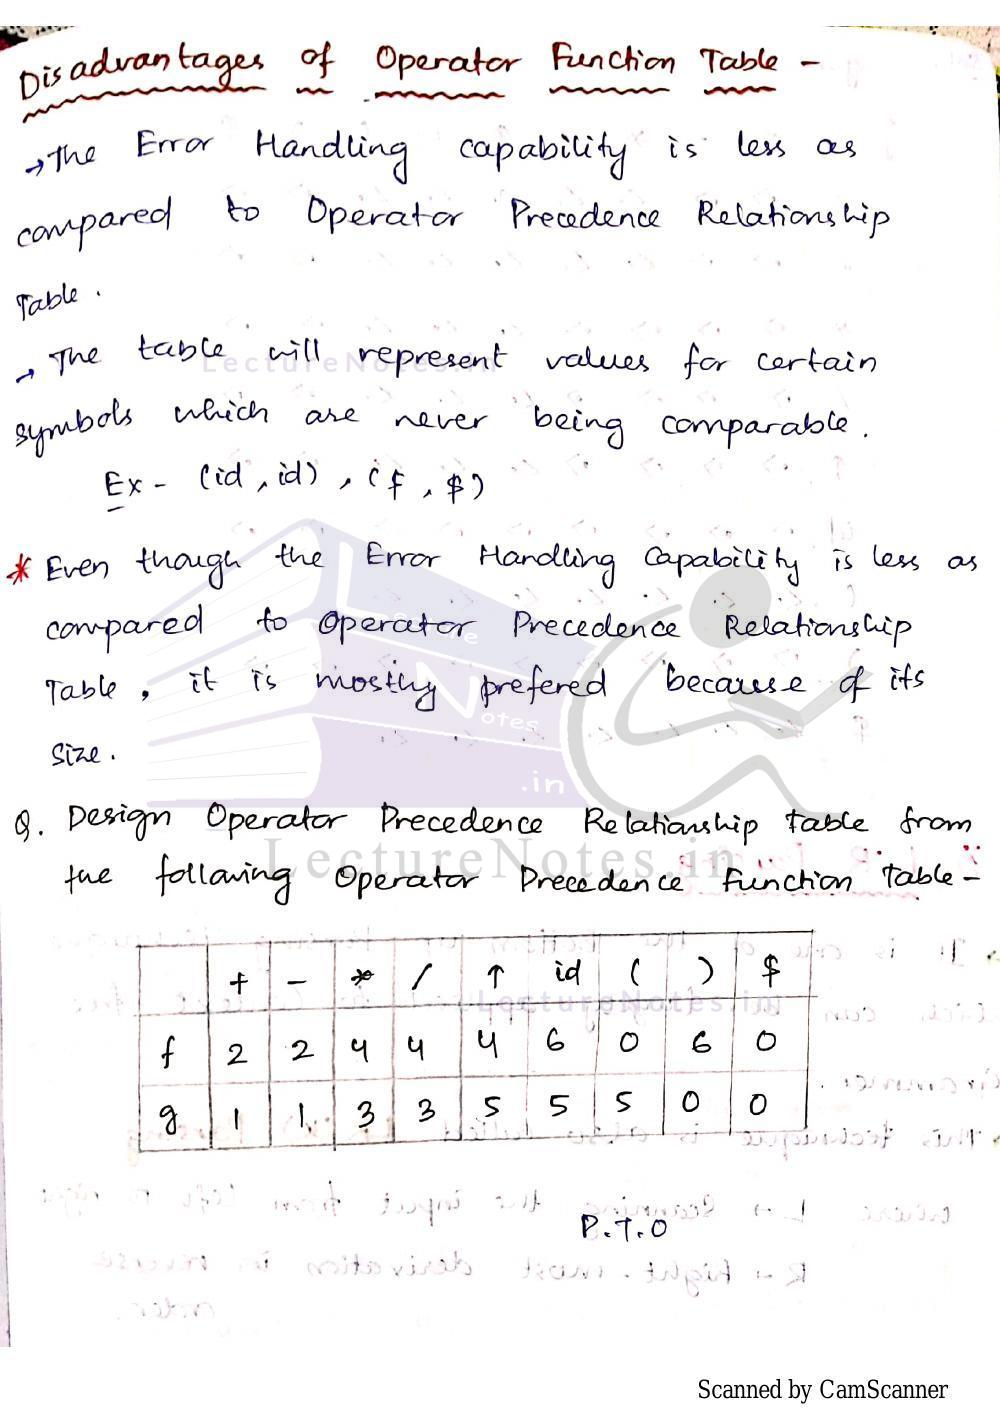 Disadvantages of Operator Function Table -
→ The Error Handling capability is less as
compared to Operator Precedence Relationship
Table.
→ The table will represent values for certain
symbols which are never being comparable.
Ex - (id, id), (f, $)
* Even though the Error Handling Capability is less as
compared to Operator Precedence Relationship
Table, it is mostly prefered because of its
size.
Q. Design Operator Precedence Relationship table from
the following Operator Precedence Function Table -
+ - * / ↑ id ( ) $
f 2 2 4 4 4 6 0 6 0
g 1 1 3 3 5 5 5 0 0
P.T.O
LectureNotes.in
LectureNotes.in
LectureNotes.in
Lecture
Notes
.in
Scanned by CamScanner